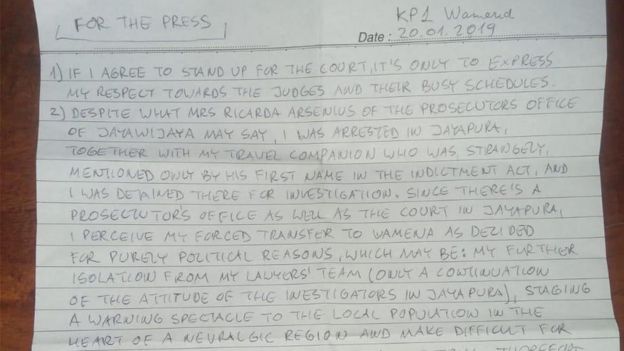 FOR THE PRESS
KP1 Wamena
Date: 20.01.2019
1) IF I AGREE TO STAND UP FOR THE COURT, IT'S ONLY TO EXPRESS
MY RESPECT TOWARDS THE JUDGES AND THEIR BUSY SCHEDULES.
2) DESPITE WHAT MRS RICARDA ARSENIUS OF THE PROSECUTORS OFFICE
OF JAYAWIJAYA MAY SAY, I WAS ARRESTED IN JAYAPURA,
TOGETHER WITH MY TRAVEL COMPANION WHO WAS, STRANGELY,
MENTIONED ONLY BY HIS FIRST NAME IN THE INDICTMENT ACT, AND
I WAS DETAINED THERE FOR INVESTIGATION. SINCE THERE'S A
PROSECUTOR'S OFFICE AS WELL AS THE COURT IN JAYAPURA,
I PERCEIVE MY FORCED TRANSFER TO WAMENA AS DECIDED
FOR PURELY POLITICAL REASONS, WHICH MAY BE: MY FURTHER
ISOLATION FROM MY LAWYERS' TEAM (ONLY A CONTINUATION
OF THE ATTITUDE OF THE INVESTIGATORS IN JAYAPURA), STAGING
A WARNING SPECTACLE TO THE LOCAL POPULATION IN THE
HEART OF A NEURALGIC REGION AND MAKE DIFFICULT FOR